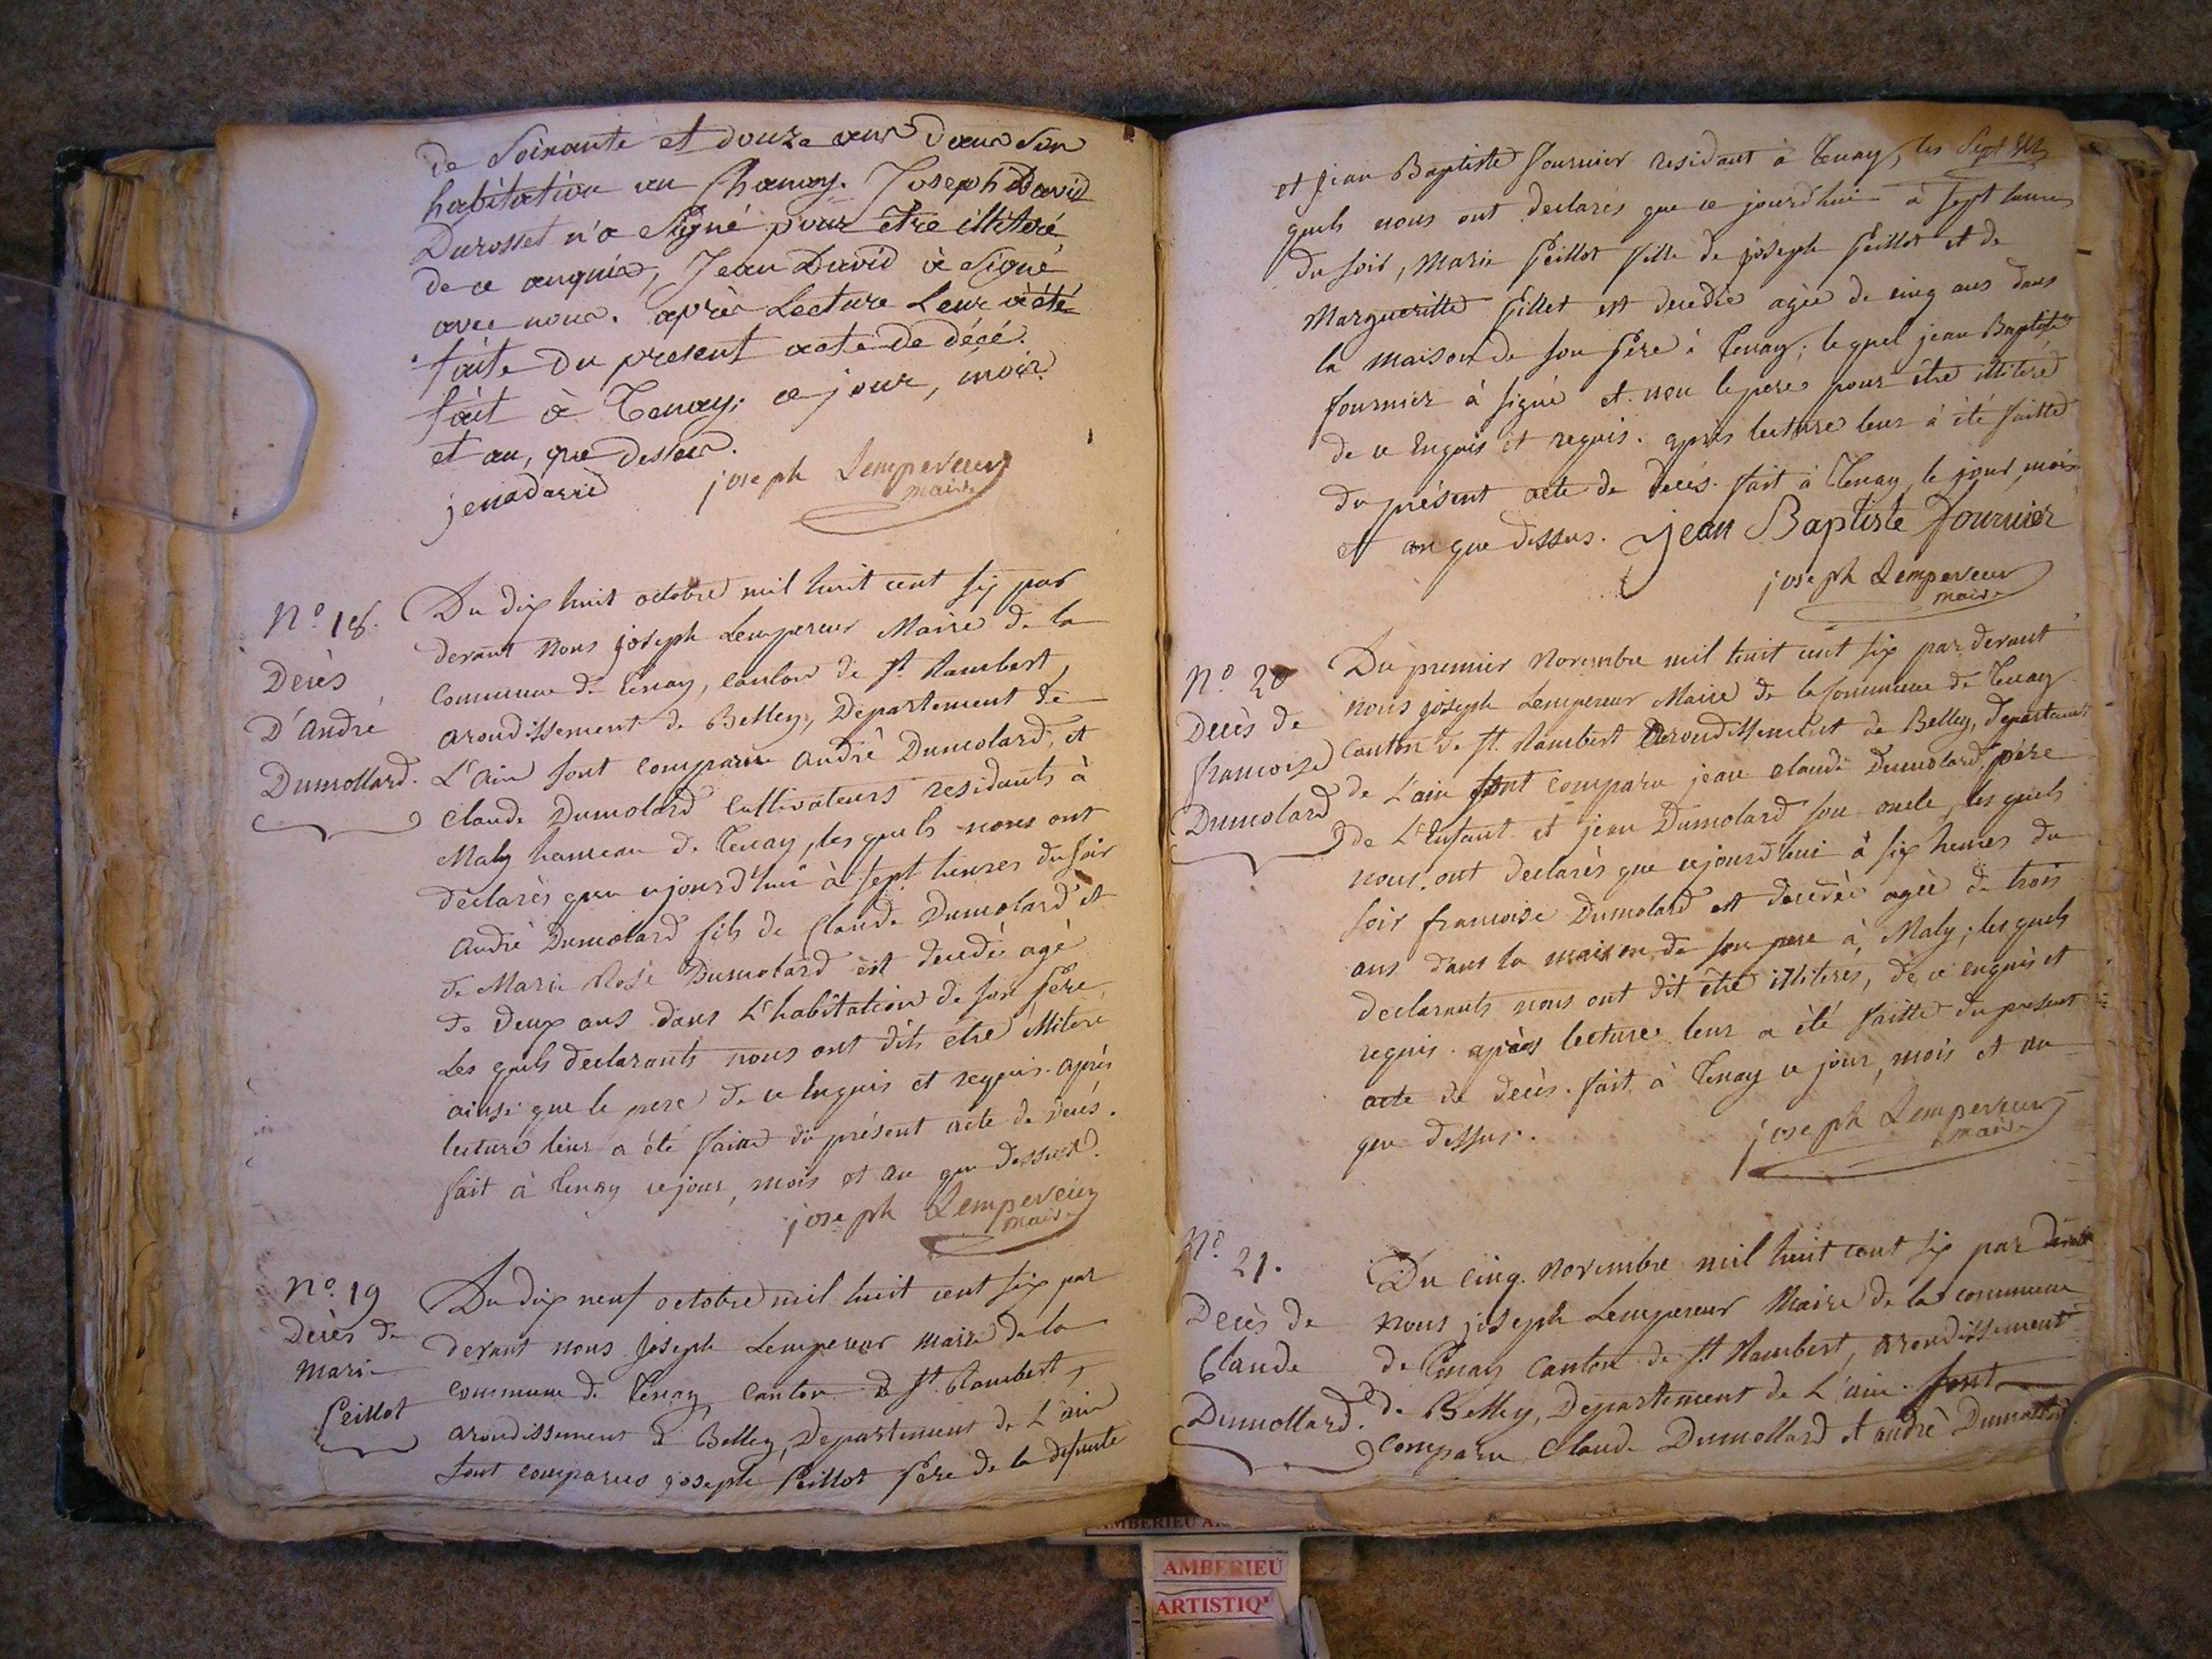 de Soixante et douze ans dans Son
habitation au Chanay. Joseph David
Durosset n'a Signé pour être illiteré
de ce enquis, Jean David à Signé
avec nous. après Lecture Leur à été
faite du present acte de décé.
fait à Tenay; ce jour, mois
et an, que dessus.
joseph Lempereur
maire
N.o 18.
Decès
D'André
Dumollard.
Du dix huit octobre mil huit cent six par
devant nous joseph Lempereur Maire de la
Commune de Tenay, canton de St. Rambert,
arondissement de Belley, Departement de
L'ain sont comparu andrè Dumolard, et
Claude Dumolard Cultivateurs residants à
Maly hameau de Tenay, les quels nous ont
declarès que cejourd'hui à sept heures du soir
andrè Dumolard fils de Claude Dumolard et
de Marie Rose Dumolard est decedè agè
de deux ans dans L'habitation de son Père
Les quels declarants nous ont dits etre illiterè
ainsi que le pere de ce Enquis et requis. après
lecture leur a été faitte du présent acte de decès.
fait à Tenay ce jour, mois et an que dessus.
joseph Lempereur
maire
N.o 19
Decès de
Marie
Peillot
Du dix neuf octobre mil huit cent six par
devant nous joseph Lempereur maire de la
commune de Tenay canton de St. Rambert,
arondissement de Belley, Departement de L'ain
sont comparus joseph Peillot Père de la defunte
et jean Baptiste fournier residant à Tenay, les
quels nous ont declarés que ce jourd'hui à sept heures
du soir, Marie Peillot fille de joseph Peillot et de
Margueritte Gillet est decedée agèe de cinq ans dans
la maison de son Père à Tenay; lequel jean Baptiste
fournier à signé et non le pere pour être illiteré
de ce Enquis et requis. après lecture leur à été faitte
du présent acte de decès. fait à Tenay, le jour, mois
et an que dessus. Jean Baptiste Fournier
joseph Lempereur
maire
N.o 20
Decès de
francoise
Dumolard
Du premier Novembre mil huit cent six par devant
nous joseph Lempereur Maire de la Commune de Tenay
Canton de St. Rambert arondissement de Belley, departement
de L'ain sont comparu jean claude Dumolard, père
de L'Enfant et jean Dumolard son oncle, les quels
nous ont declarès que cejourd'hui à six heures du
soir francoise Dumolard est decedèe agèe de trois
ans dans la maison de son pere à Maly; les quels
declarants nous ont dit être illiterés, de ce enquis et
requis. après lecture leur a èté faitte du present
acte de decès. fait à Tenay ce jour, mois et an
que dessus.
joseph Lempereur
maire
N.o
21.
Decès de
Claude
Dumollard.
Du cinq Novembre mil huit cent six par devant
Nous joseph Lempereur Maire de la commune
de Tenay Canton de St. Rambert, arondissement
de Belley, Departement de L'ain. sont
comparu Claude Dumollard et andrè Dumollard
AMBERIEU
AMBERIEU
ARTISTIQ